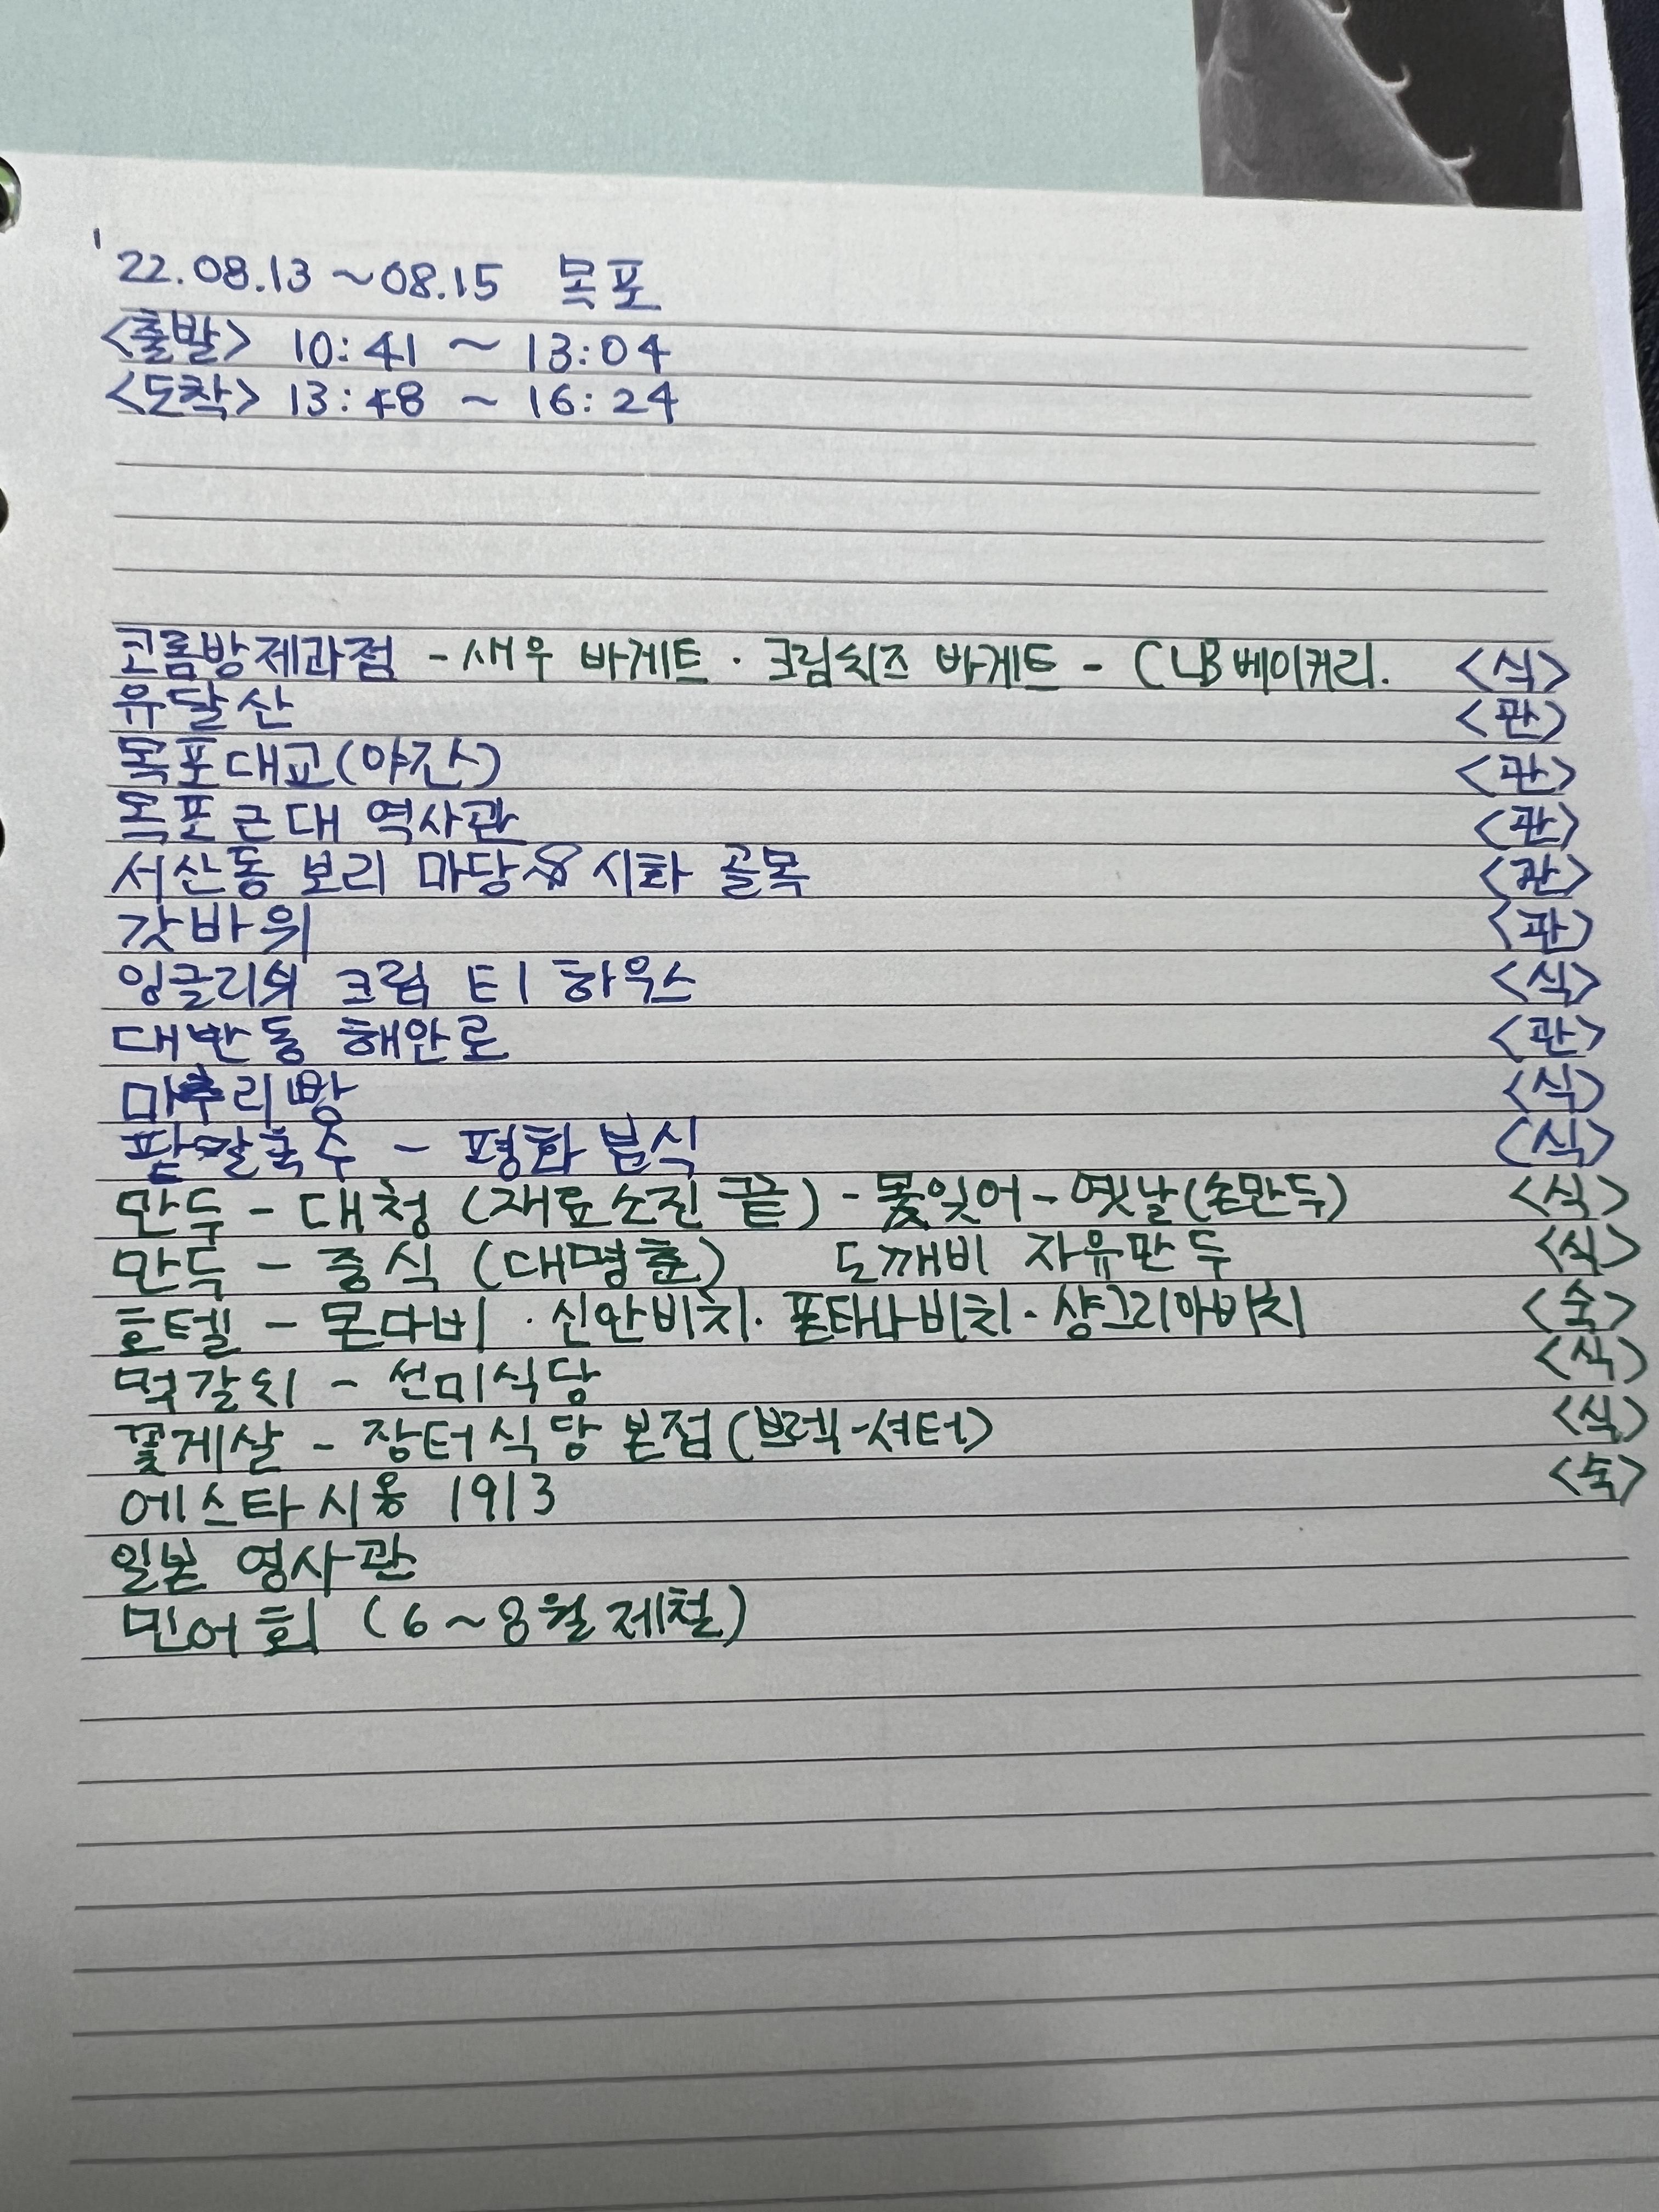 '22.08.13 ~08.15 목포
<출발> 10:41 ~ 13:04
<도착> 13:48 ~ 16:24
코롬방제과점 - 새우 바게트 · 크림치즈 바게트 - CLB베이커리. <식>
유달산 <관>
목포대교(야간) <관>
목포근대 역사관 <관>
서산동 보리 마당& 시화 골목 <관>
갓바위 <관>
잉글리쉬 크림 티 하우스 <식>
대반동 해안로 <관>
마추리빵 <식>
팥칼국수 - 평화분식 <식>
만두 - 대청 (재료소진 끝) - 못잊어 - 옛날(손만두) <식>
만두 - 중식 (대명춘) 도깨비 자유만두 <식>
호텔 - 몬다비 · 신안비치 · 폰타나비치 · 샹그리아비치 <숙>
떡갈비 - 선미식당 <식>
꽃게살 - 장터식당 본점(브레-셔터) <식>
에스타시옹 1913 <숙>
일본 영사관
민어회 (6~8월 제철)